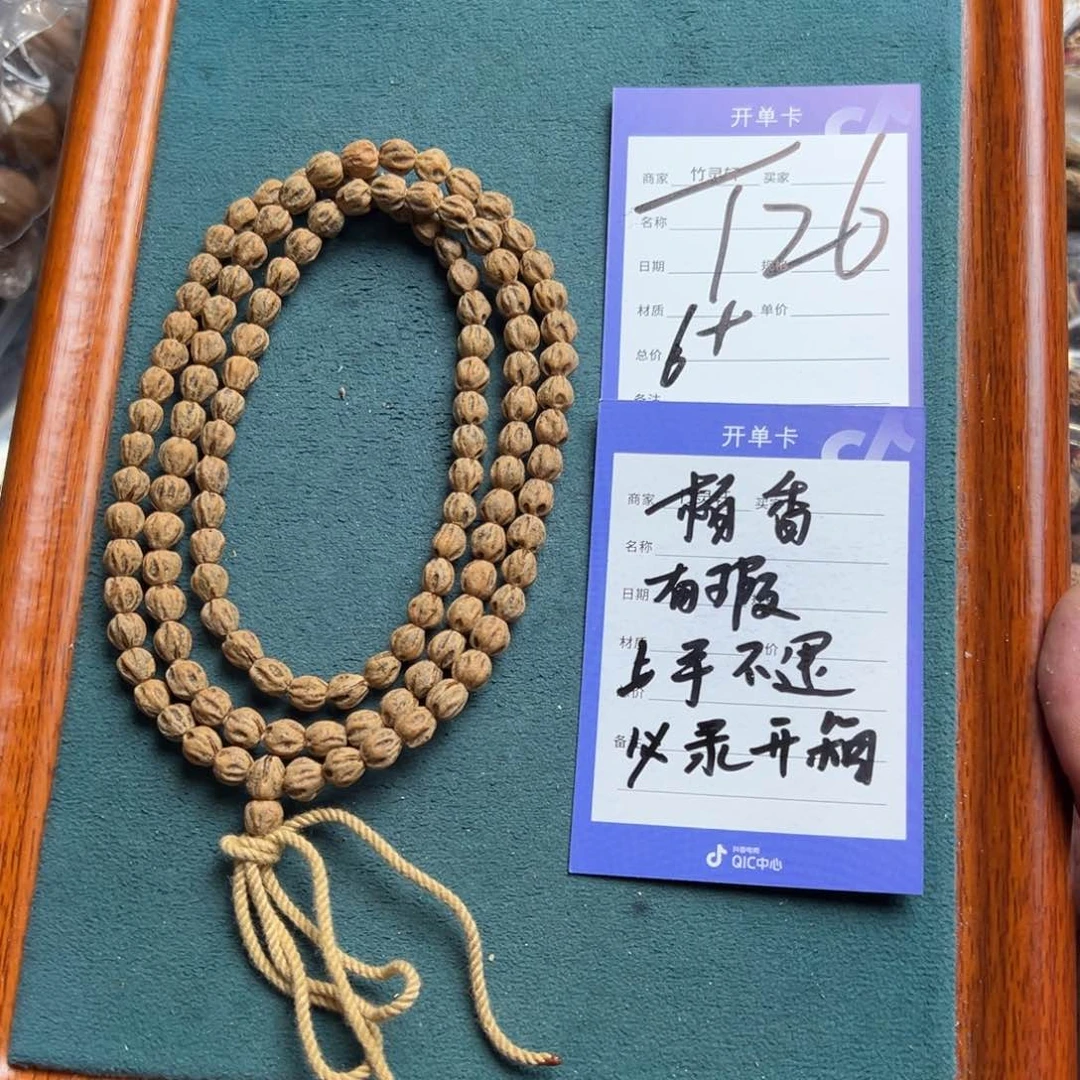 开单卡
商家 竹灵轩 买家
名称
日期
材质 单价
总价
T26
6+
开单卡
商家 买家
名称
日期
材质
备注
香
有瑕
上手不退
必录开箱
抖音电商
QIC中心